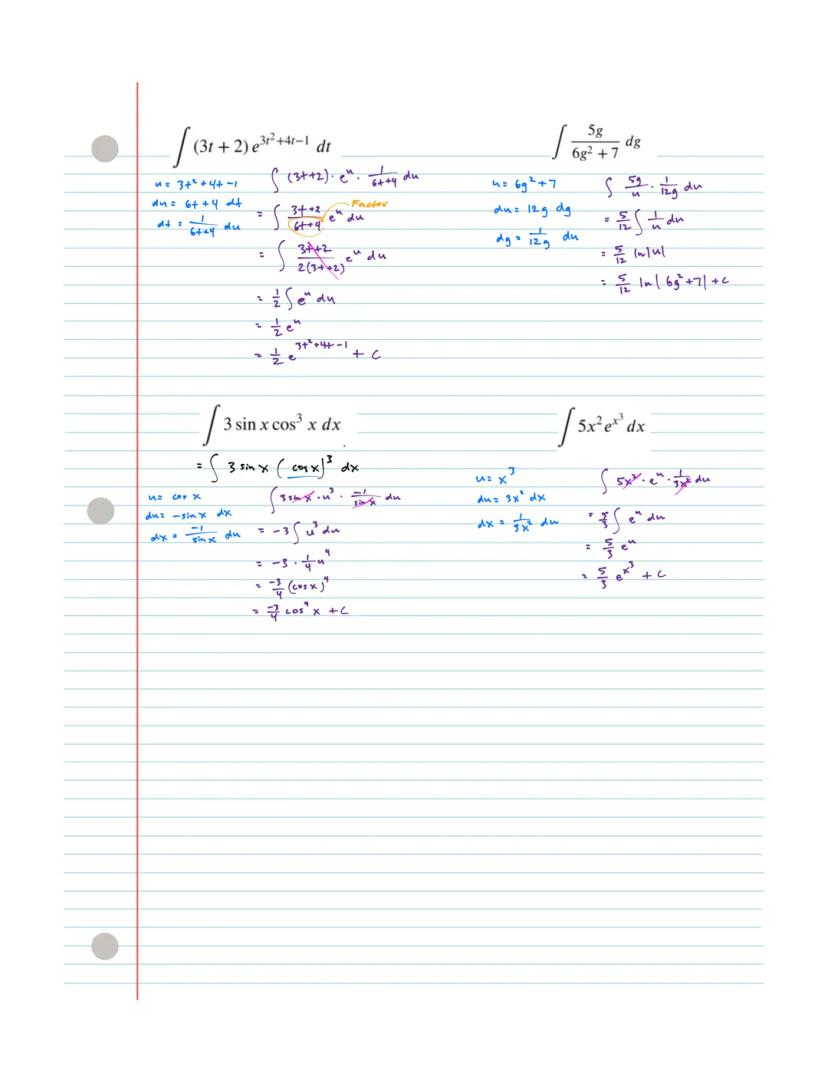 ∫ (3t + 2) e^{3t²+4t−1} dt
u = 3t² + 4t − 1
du = 6t + 4 dt
dt = 1/(6t+4) du
∫ (3t+2) · e^u · 1/(6t+4) du
= ∫ (3t+2)/(6t+4) e^u du
Factor
= ∫ (3t+2)/(2(3t+2)) e^u du
= 1/2 ∫ e^u du
= 1/2 e^u
= 1/2 e^{3t²+4t−1} + C
∫ 5g/(6g² + 7) dg
u = 6g² + 7
du = 12g dg
dg = 1/(12g) du
∫ 5g/u · 1/(12g) du
= 5/12 ∫ 1/u du
= 5/12 ln|u|
= 5/12 ln|6g²+7| + C
∫ 3 sin x cos³ x dx
= ∫ 3 sin x (cos x)³ dx
u = cos x
du = −sin x dx
dx = −1/(sin x) du
∫ 3 sin x · u³ · −1/(sin x) du
= −3 ∫ u³ du
= −3 · 1/4 u⁴
= −3/4 (cos x)⁴
= −3/4 cos⁴ x + C
∫ 5x² e^{x³} dx
u = x³
du = 3x² dx
dx = 1/(3x²) du
∫ 5x² · e^u · 1/(3x²) du
= 5/3 ∫ e^u du
= 5/3 e^u
= 5/3 e^{x³} + C